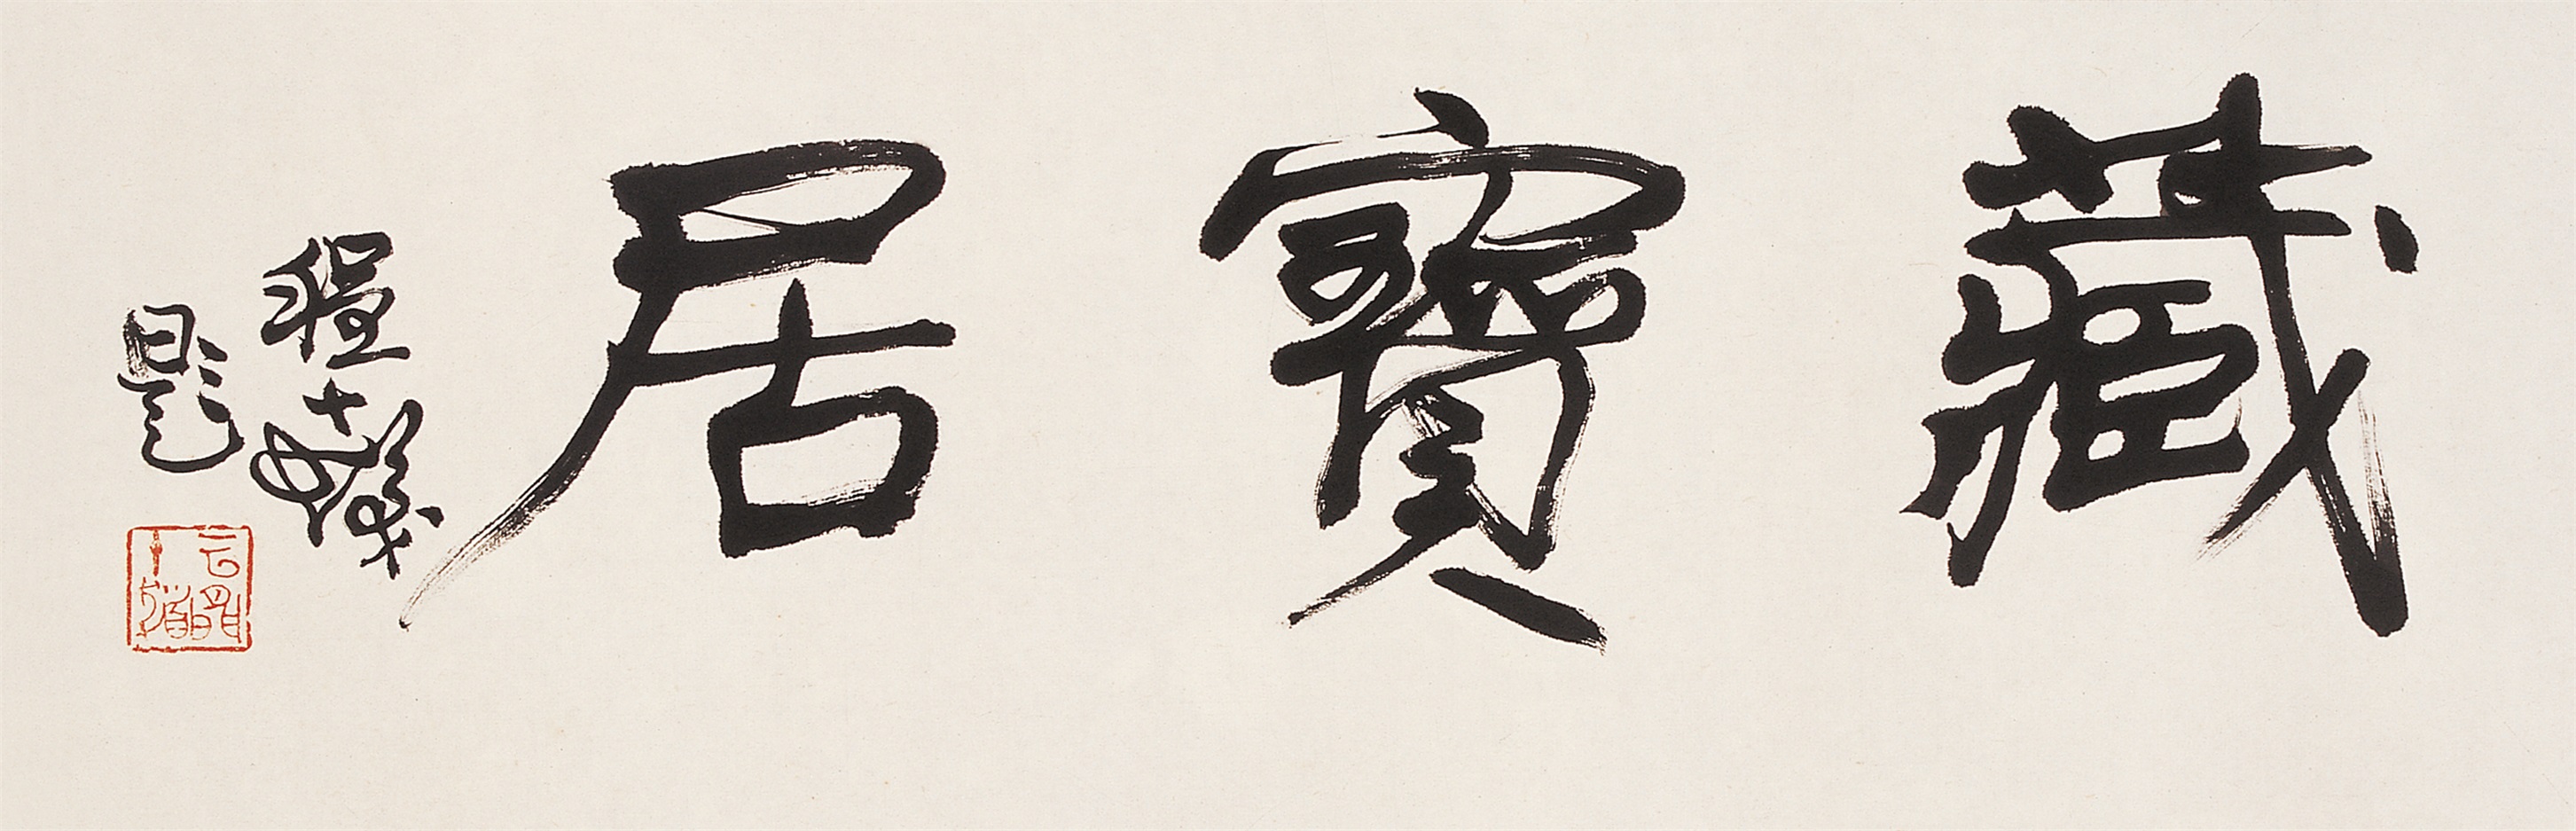 藏寶居
程十髮
題